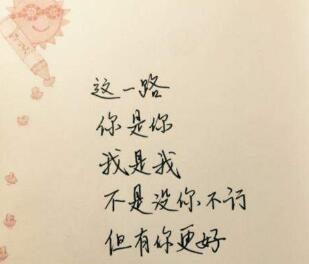 這一路
你是你
我是我
不是没你不行
但有你更好